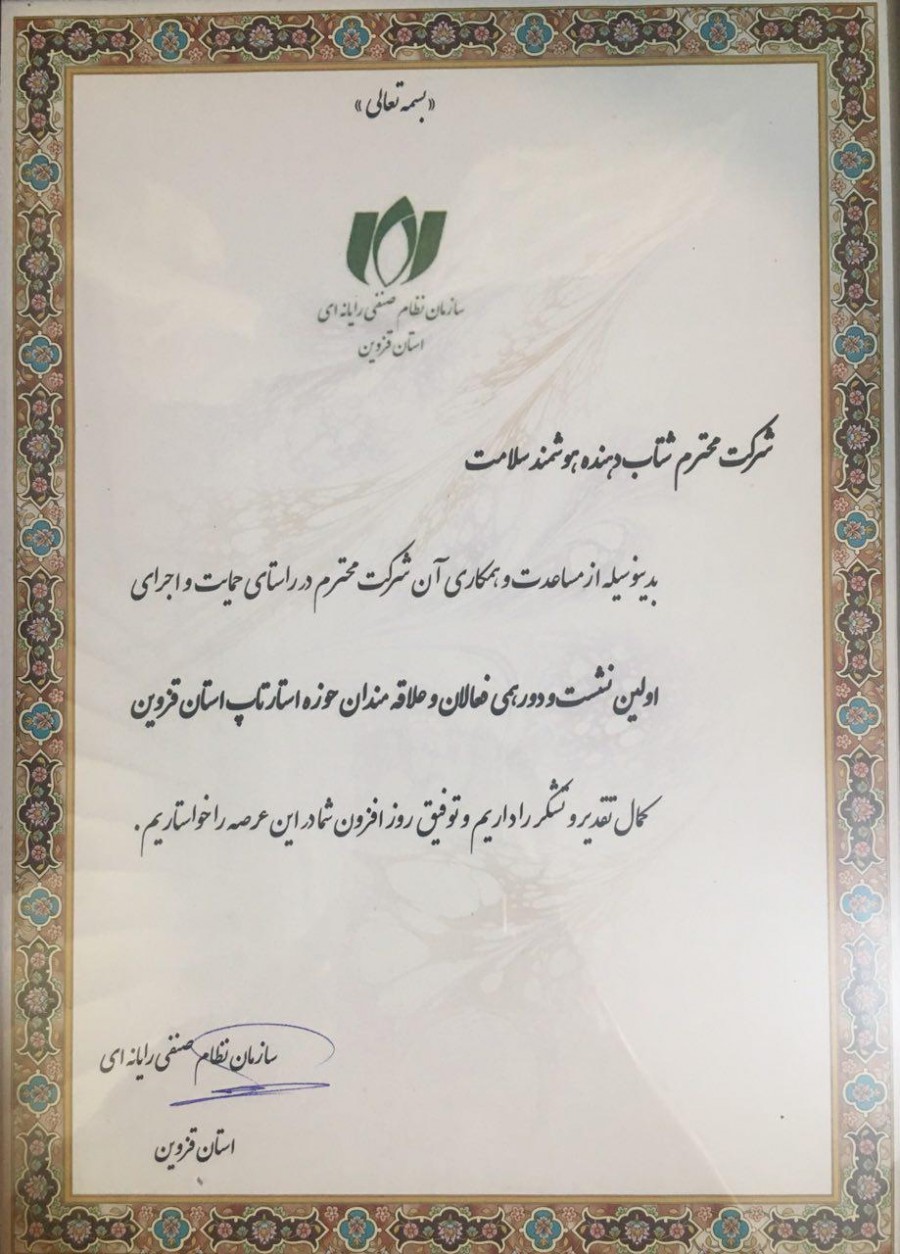 «بسمه تعالی»
سازمان نظام صنفی رایانه ای
استان قزوین
شرکت محترم شتاب دهنده هوشمند سلامت
بدینوسیله از مساعدت و همکاری آن شرکت محترم در راستای حمایت و اجرای
اولین نشست و دورهمی فعالان و علاقه مندان حوزه استارتاپ استان قزوین
کمال تقدیر و تشکر را داریم و توفیق روز افزون شما در این عرصه را خواستاریم.
سازمان نظام صنفی رایانه ای
استان قزوین